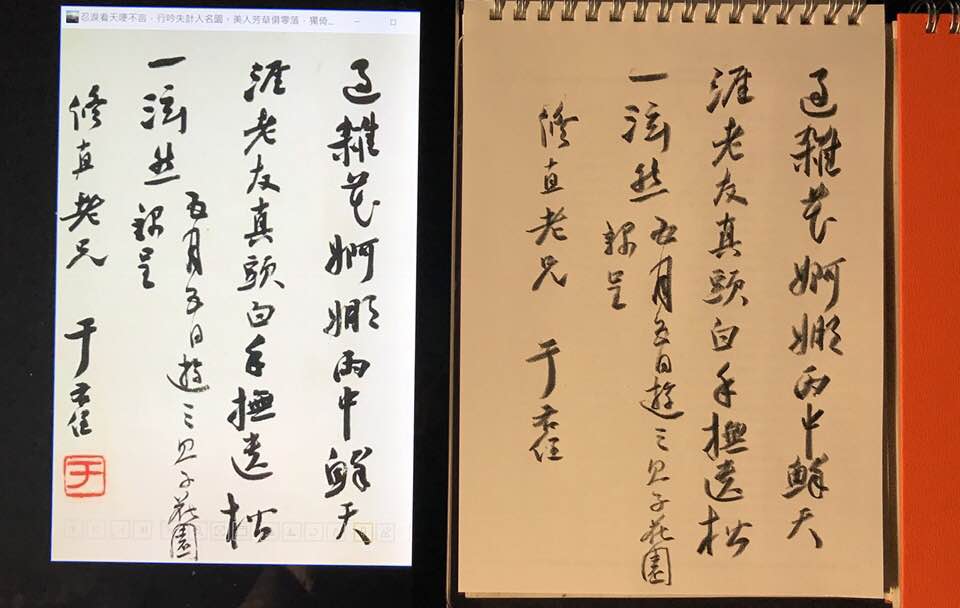 忍淚看天哽不言，行吟失計入名園，美人芳草俱零落，獨倚...
過雜花婀娜雨中鮮天
涯老友真頭白手撫遺松
一泫然
五月五日遊三貝子花園
錄呈
修真老兄
于右任
于
過雜花婀娜雨中鮮天
涯老友真頭白手撫遺松
一泫然
五月五日遊三貝子花園
錄呈
修真老兄
于右任